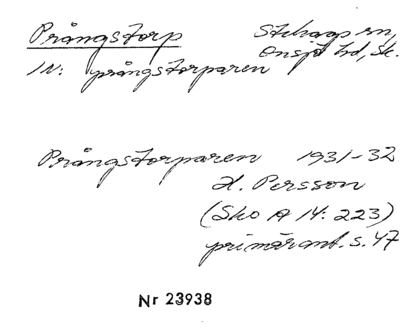 Prångstorp Stehags sn,
Onsjö hd, Sk.
IN: prångstorparen
Prångstorparen 1931-32
H. Persson
(Sko A 14: 223)
primärant. s. 47
Nr 23938